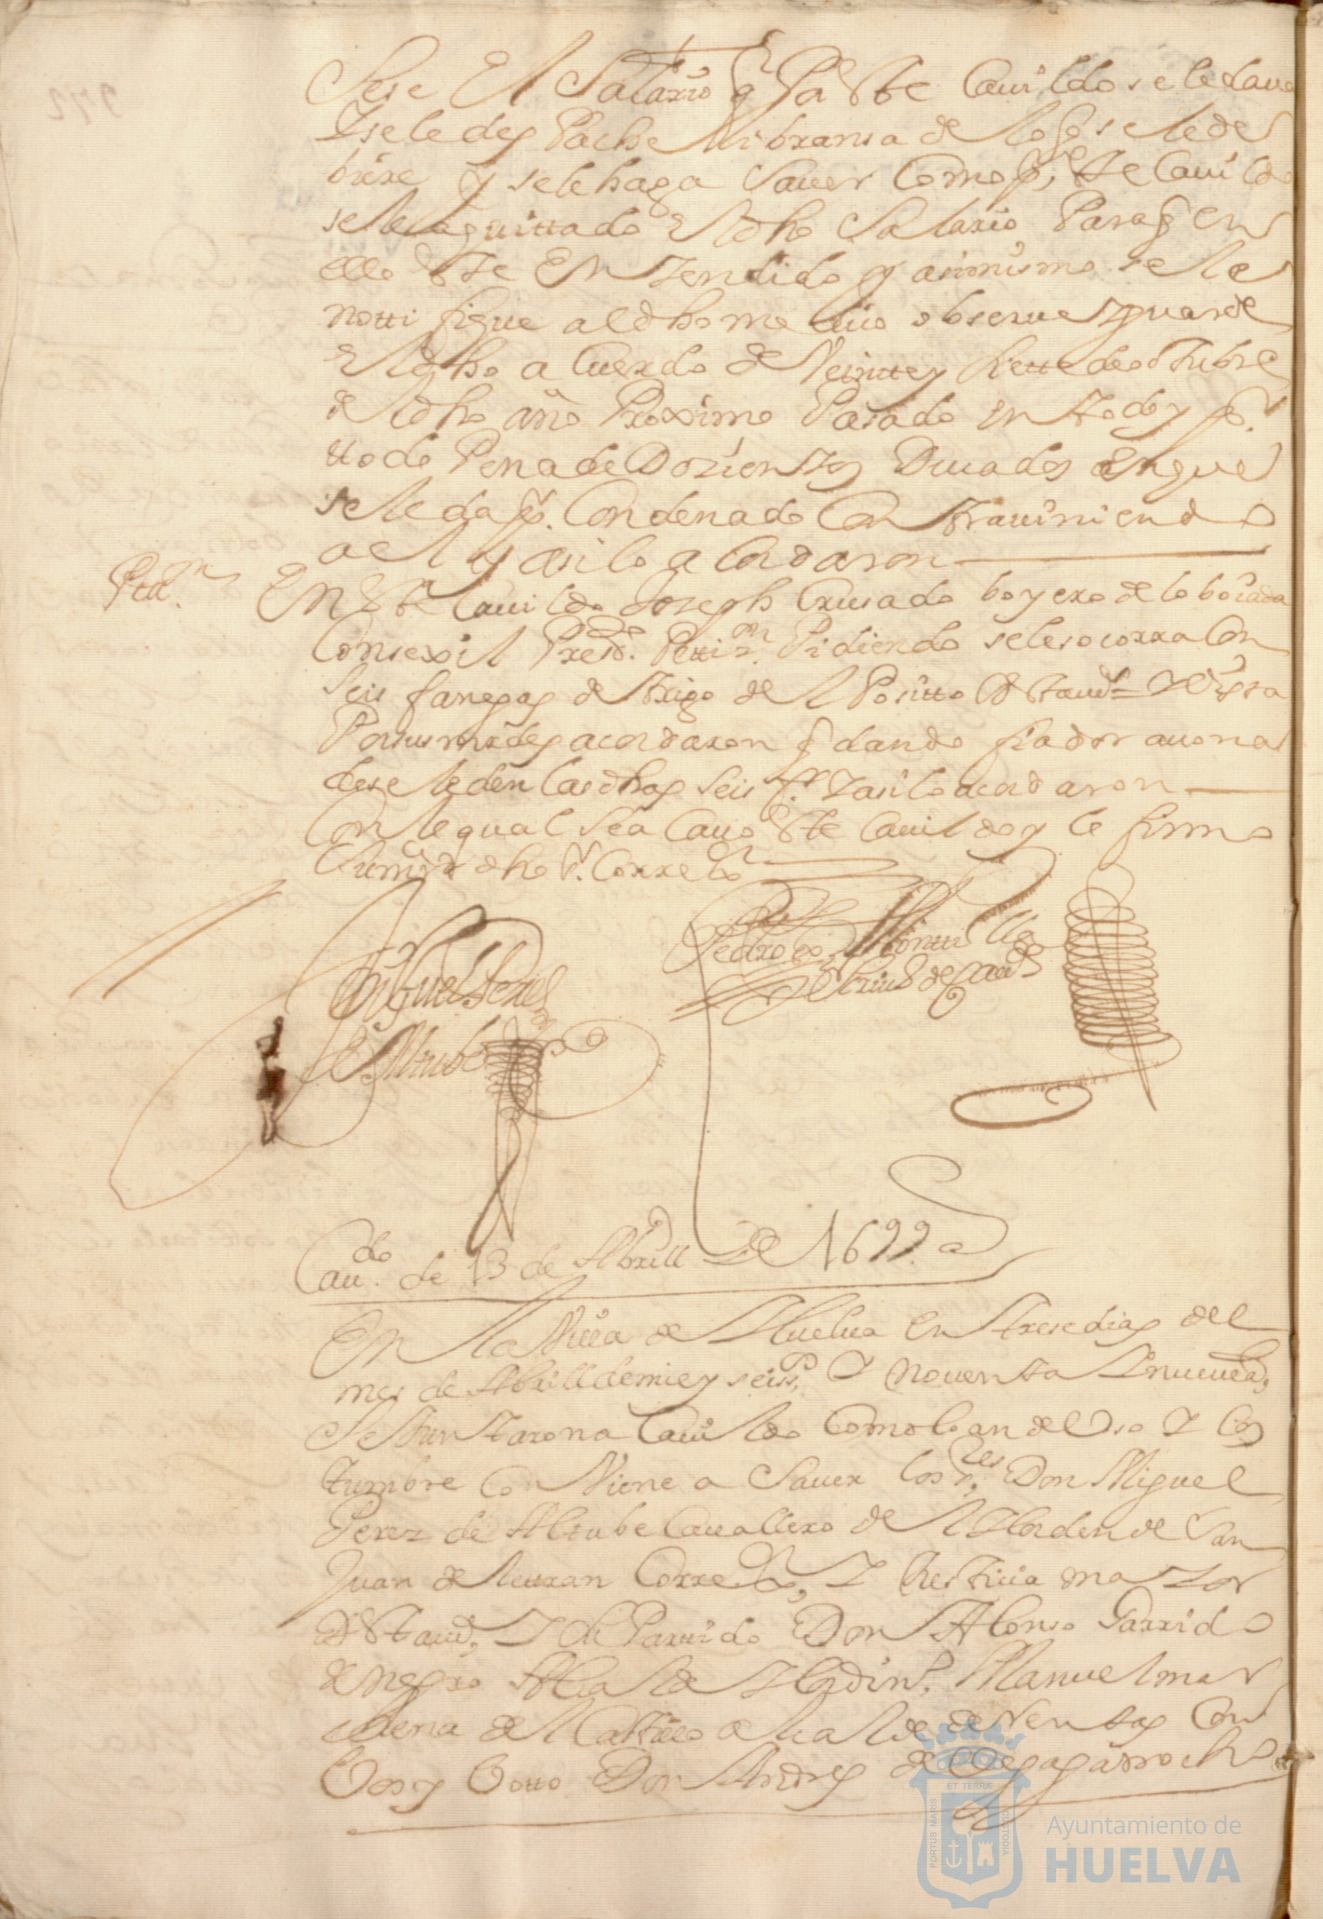 Sese El Salario q̃ Pr Este Cauildo se le daua
Y se le des Pache Libransa de lo q̃ se le de
biere y se le haga Sauer Como pr. Este Cauildo
se le a quittado El dho Salario Para q̃ en
ello Este Entendido y asimismo se le
notti fique al dho mo Obserue y guarde
El dho a Cuerdo de Veintte y siette de octubre
del dho año Proximo Pasado en todo y pr.
ttodo Pena de Dozientos Ducados en que
se le da pr. Condenado Contrauiniendo
a el y asi lo a Cordaron
Pettn. En Este Cauildo Joseph Crusado boyero de lo boiada
Consexil Presdo. Pettizn. Pidiendo se le socorra Con
seis fanegas de trigo del Positto de Esta uilla = Y Vista
Por sus mrdes acordaron q̃ dando fiador auona
do se le den las dhas seis fs. Y asi lo acordaron
Con lo qual se a Cauo Este Cauildo y lo firmo
Su mrd dho sr. Correxor
Don Miguel Perez
de Altube
Pedro de Montti lla
Escriuo de Cauildo
Cauo. de 13 de Abrill de 1699 as
En la Villa de Huelua en trese dias del
mes de Abrill de mil y seissos. Y nouenta Y nueue as.
Se Juntaron a Cauildo Como lo an de Uso Y Cos
tumbre Con Viene a Sauer los sres. Don Miguel
Perez de Altube Cauallero de el Horden de San
Juan de Lettran Correxor, Y Justicia mayor
de Esta uilla, Y de Partido Don Alonso Garrido
de negro Alcalde Hordino. Manuel mar
chena del Castillo alcalde de Ventas Con
Vos y Votto Don Andres de Vega garrocho
PORTUS MARIS ET TERRÆ CUSTODIA
Ayuntamiento de
HUELVA